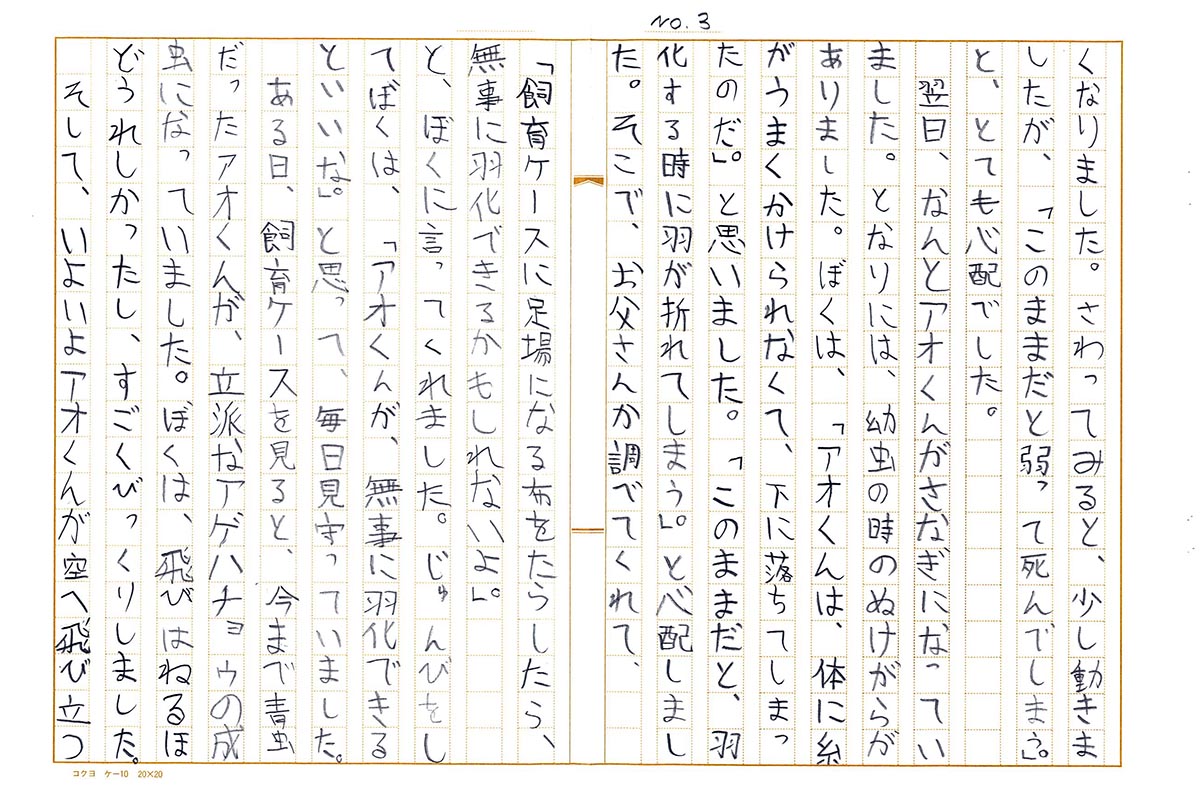 No.3
くなりました。さわってみると、少し動きま
したが、「このままだと弱って死んでしまう。」
と、とても心配でした。
翌日、なんとアオくんがさなぎになってい
ました。となりには、幼虫の時のぬけがらが
ありました。ぼくは、「アオくんは、体に糸
がうまくかけられなくて、下に落ちてしまっ
たのだ。」と思いました。「このままだと、羽
化する時に羽が折れてしまう。」と心配しまし
た。そこで、お父さんか調べてくれて、
「飼育ケースに足場になる布をたらしたら、
無事に羽化できるかもしれないよ。」
と、ぼくに言ってくれました。じゅんびをし
てぼくは、「アオくんが、無事に羽化できる
といいな。」と思って、毎日見守っていました。
ある日、飼育ケースを見ると、今まで青虫
だったアオくんが、立派なアゲハチョウの成
虫になっていました。ぼくは、飛びはねるほ
どうれしかったし、すごくびっくりしました。
そして、いよいよアオくんが空へ飛び立つ
コクヨ ケー10 20×20